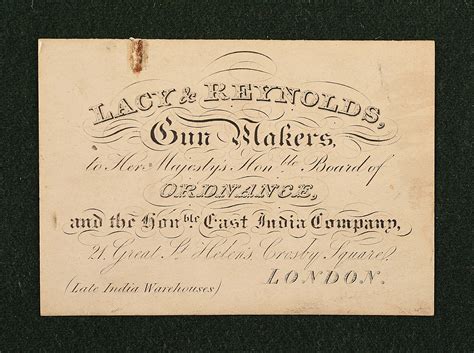 LACY & REYNOLDS,
Gun Makers,
to Her Majesty's Hon.ble Board of
ORDNANCE,
and the Hon.ble East India Company,
21, Great St. Helen's, Crosby Square,
LONDON.
(Late India Warehouses)